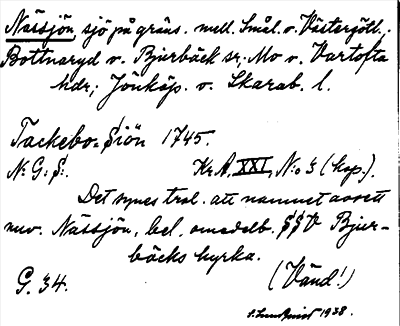 Nässjön sjö på gräns. mell. Smål. o. Västergötl.:
Bottnaryd o. Bjurbäck sr; Mo o. Vartofta
hdr; Jönköp. o. Skarab. l.
Tackebo-Siön 1745.
N: G: S:. Kr. A, XXI, N:o 3 (kop.).
Det synes trol. att namnet avsett
nuv. Nässjön, bel. omedelb. SSV Bjur-
bäcks kyrka.
G. 34. (Vänd!)
1938.